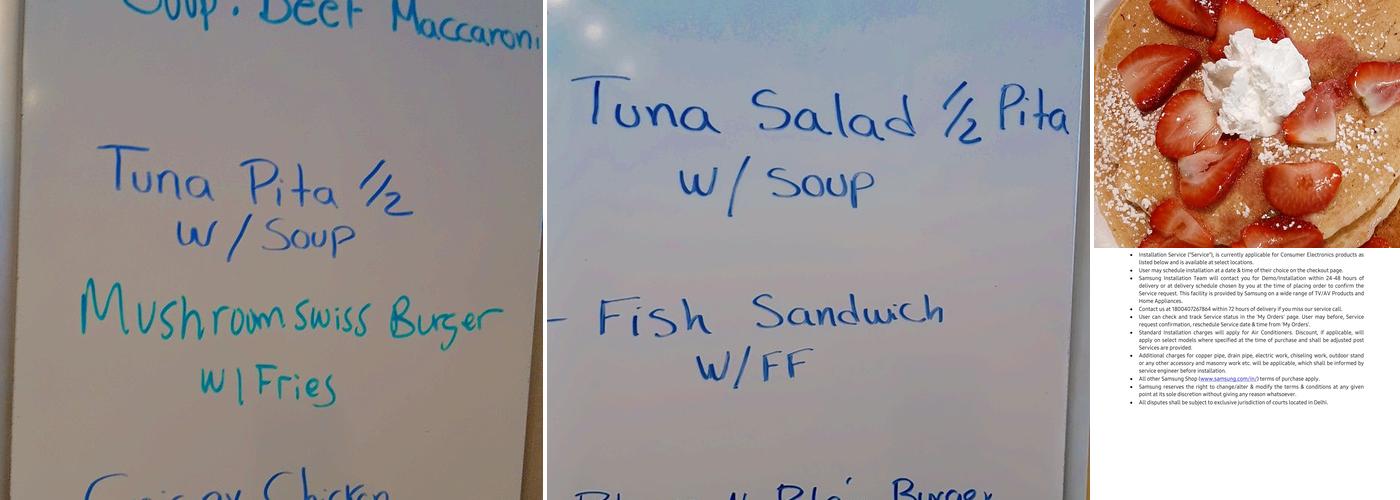 Soup. Beef Maccaroni
Tuna Pita 1/2
w/Soup
Mushroom Swiss Burger
w/Fries
Chicken
Tuna Salad 1/2 Pita
w/Soup
- Fish Sandwich
w/FF
Burger
• Installation Service ("Service"), is currently applicable for Consumer Electronics products as
listed below and is available at select locations.
• User may schedule installation at a date & time of their choice on the checkout page.
• Samsung Installation Team will contact you for Demo/Installation within 24-48 hours of
delivery or at delivery schedule chosen by you at the time of placing order to confirm the
Service request. This facility is provided by Samsung on a wide range of TV/AV Products and
Home Appliances.
• Contact us at 1800407267864 within 72 hours of delivery if you miss our service call.
• User can check and track Service status in the 'My Orders' page. User may before, Service
request confirmation, reschedule Service date & time from 'My Orders'.
• Standard Installation charges will apply for Air Conditioners. Discount, if applicable, will
apply on select models where specified at the time of purchase and shall be adjusted post
Services are provided.
• Additional charges for copper pipe, drain pipe, electric work, chiseling work, outdoor stand
or any other accessory and masonry work etc. will be applicable, which shall be informed by
service engineer before installation.
• All other Samsung Shop (www.samsung.com/in/) terms of purchase apply.
• Samsung reserves the right to change/alter & modify the terms & conditions at any given
point at its sole discretion without giving any reason whatsoever.
• All disputes shall be subject to exclusive jurisdiction of courts located in Delhi.